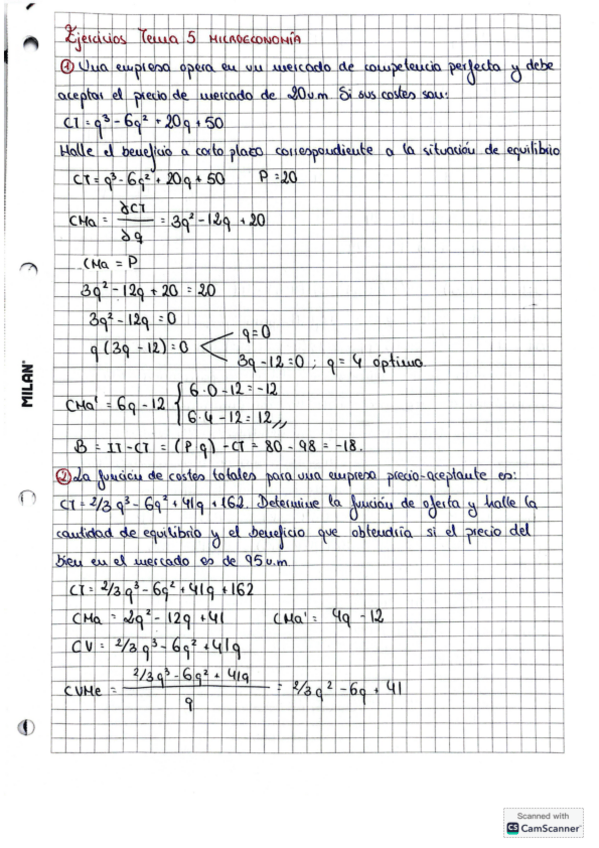 Ejercicios Tema 5 MICROECONOMÍA
① Una empresa opera en un mercado de competencia perfecta y debe
aceptar el precio de mercado de 20u.m Si sus costes son:
CT = q³ - 6q² + 20q + 50
Halle el beneficio a corto plazo correspondiente a la situación de equilibrio
CT = q³ - 6q² + 20q + 50 P = 20
CMa = ∂CT/∂q = 3q² - 12q + 20
CMa = P
3q² - 12q + 20 = 20
3q² - 12q = 0
q (3q - 12) = 0 q = 0
3q - 12 = 0 ; q = 4 óptimo.
CMa' = 6q - 12 { 6·0 - 12 = -12
6·4 - 12 = 12,,
B = IT - CT = (P q) - CT = 80 - 98 = -18.
② La función de costes totales para una empresa precio-aceptante es:
CT = 2/3 q³ - 6q² + 41q + 162. Determine la función de oferta y halle la
cantidad de equilibrio y el beneficio que obtendría si el precio del
bien en el mercado es de 95u.m
CT = 2/3 q³ - 6q² + 41q + 162
CMa = 2q² - 12q + 41 CMa' = 4q - 12
CV = 2/3 q³ - 6q² + 41q
CVMe = (2/3 q³ - 6q² + 41q)/q = 2/3 q² - 6q + 41
MILAN
Scanned with
CS CamScanner